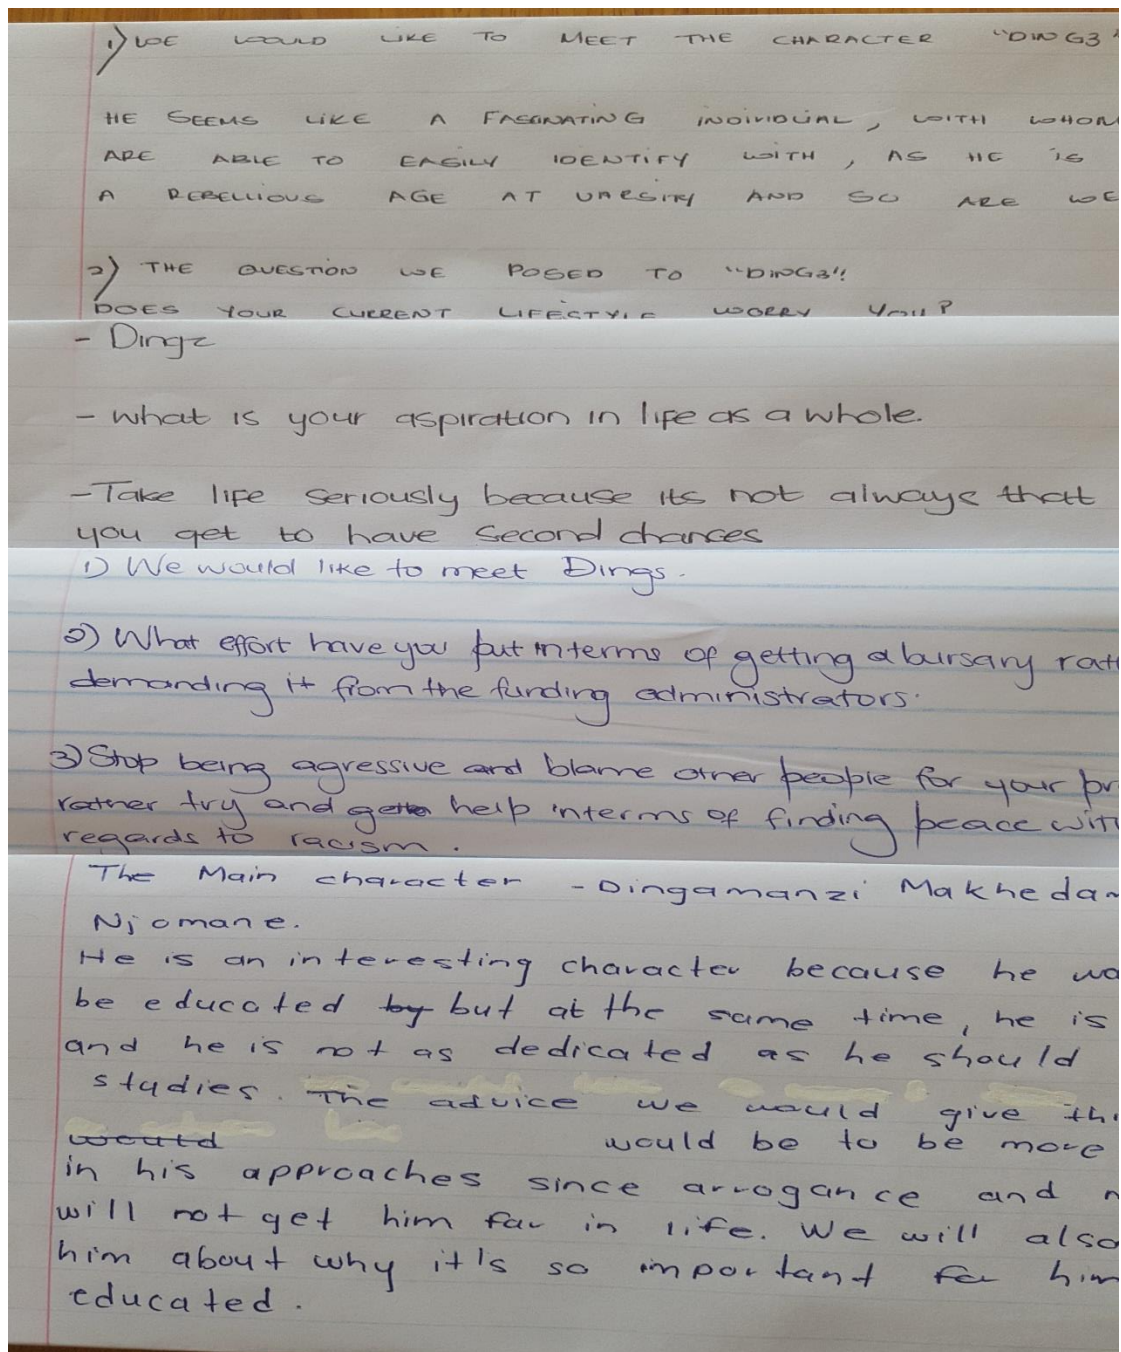 1) WE WOULD LIKE TO MEET THE CHARACTER "DING3"
HE SEEMS LIKE A FASCINATING INDIVIDUAL, WITH WHOM
ARE ABLE TO EASILY IDENTIFY WITH, AS HE IS
A REBELLIOUS AGE AT VARSITY AND SO ARE WE
2) THE QUESTION WE POSED TO "DING3"!
DOES YOUR CURRENT LIFESTYLE WORRY YOU?
- Dingz
- what is your aspiration in life as a whole.
- Take life seriously because its not always that
you get to have second chances
1) We would like to meet Dings.
2) What effort have you put interms of getting a bursary rat
demanding it from the funding administrators.
3) Stop being agressive and blame other people for your pr
rather try and get help interms of finding peace wit
regards to racism.
The Main character - Dingamanzi Makhedam
Njomane.
He is an interesting character because he wa
be educated by but at the same time, he is
and he is not as dedicated as he should
studies. The advice we would give thi
would would be to be more
in his approaches since arrogance and
will not get him far in life. We will also
him about why it's so important for him
educated.